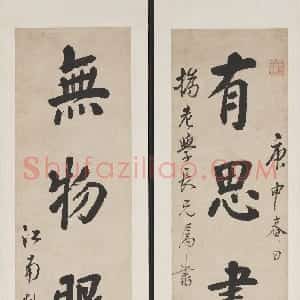 庚申春日
有思書
橋老學長兄屬書
無物眼
江南
Shufaziliao.com